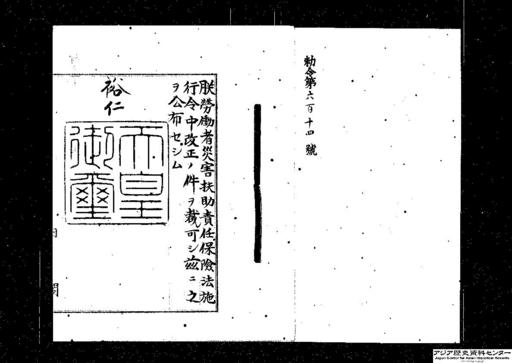 勅令第六百十四號
朕勞働者災害扶助責任保險法施
行令中改正ノ件ヲ裁可シ茲ニ之
ヲ公布セシム
裕仁
天皇
御璽
内
閣
アジア歴史資料センター
Japan Center for Asian Historical Records